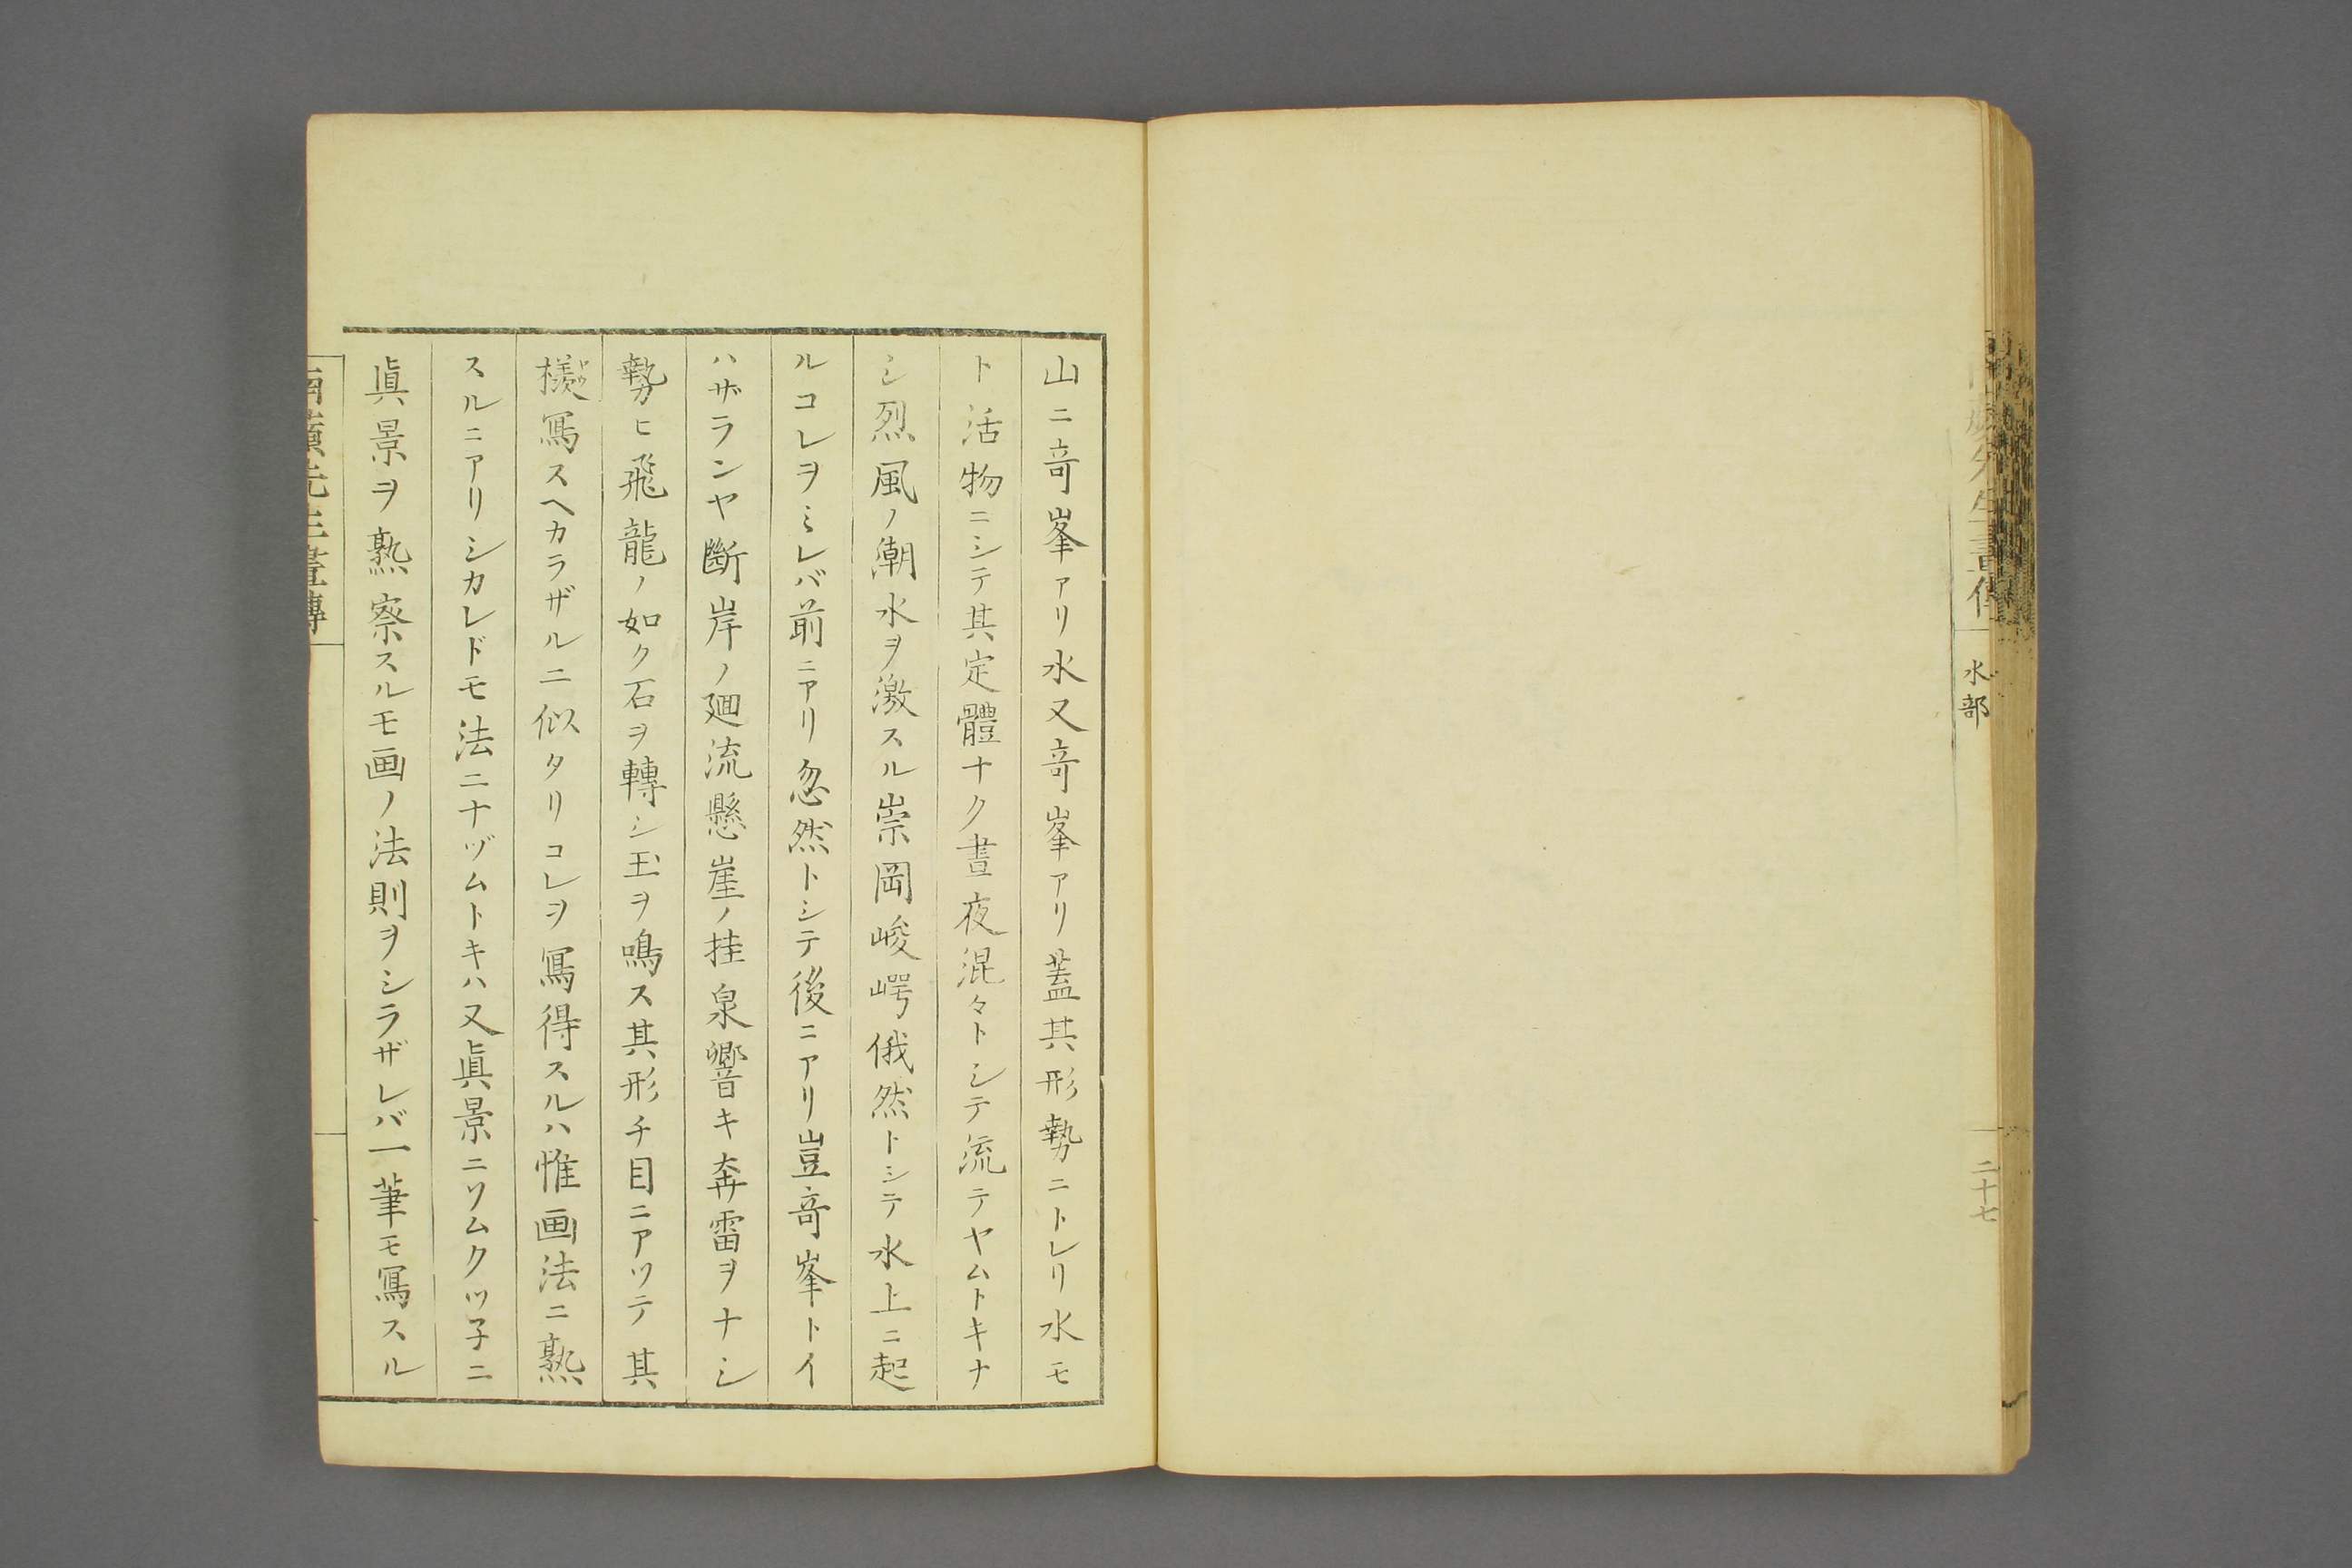 水部
二十七
山ニ竒峯アリ水又竒峯アリ蓋其形勢ニトレリ水モ
ト活物ニシテ其定體ナク晝夜混々トシテ流テヤムトキナ
シ烈風ノ潮水ヲ激スル崇岡峻崿俄然トシテ水上ニ起
ルコレヲミレバ前ニアリ忽然トシテ後ニアリ豈竒峯トイ
ハザランヤ斷岸ノ廻流懸崖ノ挂泉響キ奔雷ヲナシ
勢ヒ飛龍ノ如ク石ヲ轉シ玉ヲ鳴ス其形チ目ニアツテ其
㨾寫スヘカラザルニ似タリコレヲ寫得スルハ惟画法ニ熟
スルニアリシカレドモ法ニナヅムトキハ又眞景ニソムクツ子ニ
眞景ヲ熟察スルモ画ノ法則ヲシラザレバ一筆モ寫スル
先生畫傳